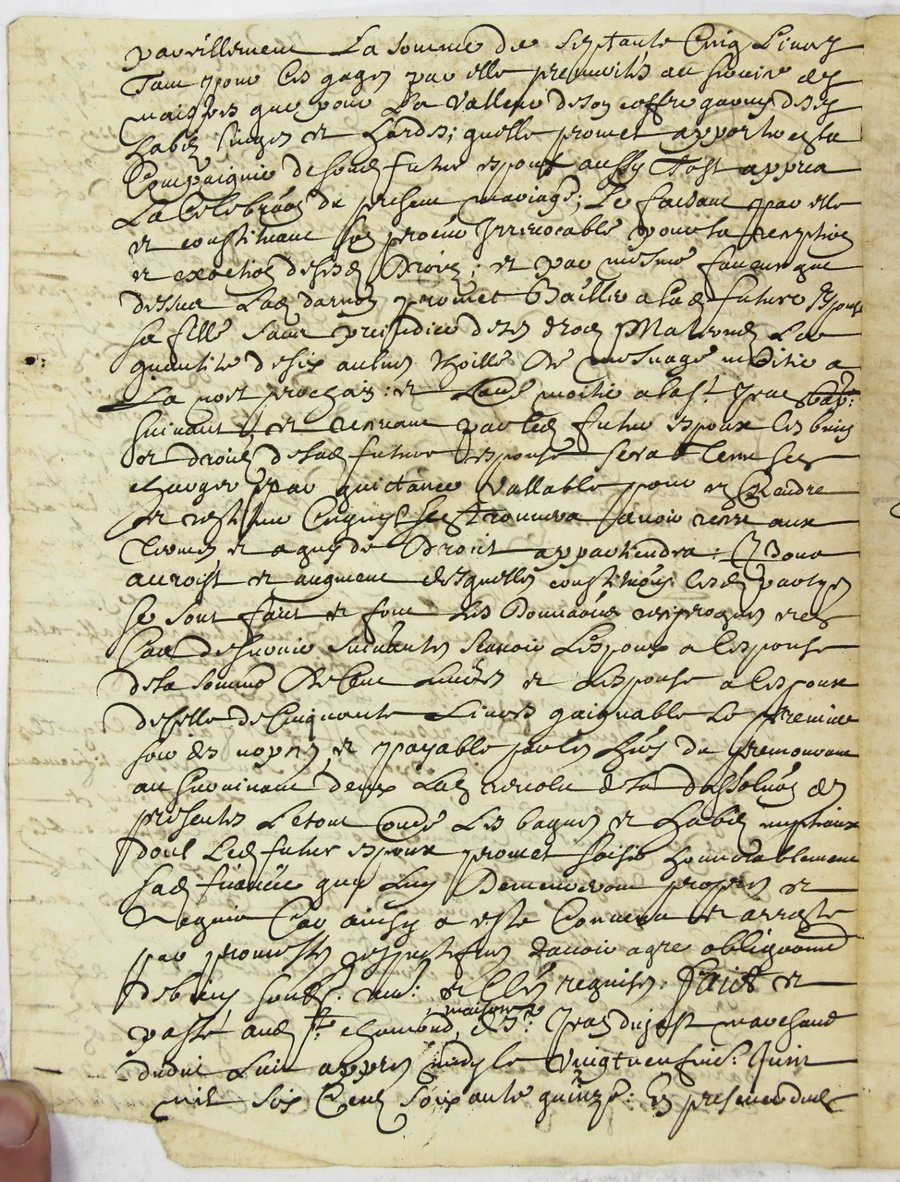 pareillement La somme de septante Cinq Livres
Tant pour les gages par elle provenits au service des
maistres que pour La Valleur de son coffre garny de ses
habits linges et hardes; quelle promet apporter en la
Compaignie de sond futur espoux aussy tost appres
La Celebraon du present mariage; Le faisant par elle
et constituant son procur Irrevocable pour la reception
et exaction desd droits; et par mesme faveur que
dessus Lad promet Bailler a lad future Espouse
sa fille sans preiudice de ses droits Maternels La
quantité de six aulnes thoille de mesnage moitié a
La prochain: et Laud moitié a la st Jean bapt:
suivant, et venant par led futur espoux les biens
et droits de lad future espouse sera tenu les
charger par quictance Vallable pour les Rendre
et restituer avoir rendre aux
et a quy de Droict appartiendra:
accroist et augment desquelles constitutions lesd partyes
se sont fait et font les Donnaons reciproques et es
Cas de survie suivantes scavoir Lespoux a lespouse
de la somme de Cent Livres et Lespouse a lespoux
de celle de Cinquante Livres gaignable Le premier
jour des nopces, et payable par les hers du premourant
au survivant deux de la dissolution des
presentes Letout oultre Les bagues et habits nuptiaux
dont Led futur espoux promet saisir honnorablement
sad fiancée quy Luy Demeureront propres et
Car ainsy a esté Convenu et arresté
par promesses respectives davoir agre obligaons
de biens soubs. et Clles requises: Faict et
passé aud st chamond, maison de sr: Jean dujast marchand
dudit Lieu appres midy le Vingtneufvie: Juin
mil six Cent soixante quinze: En presence de